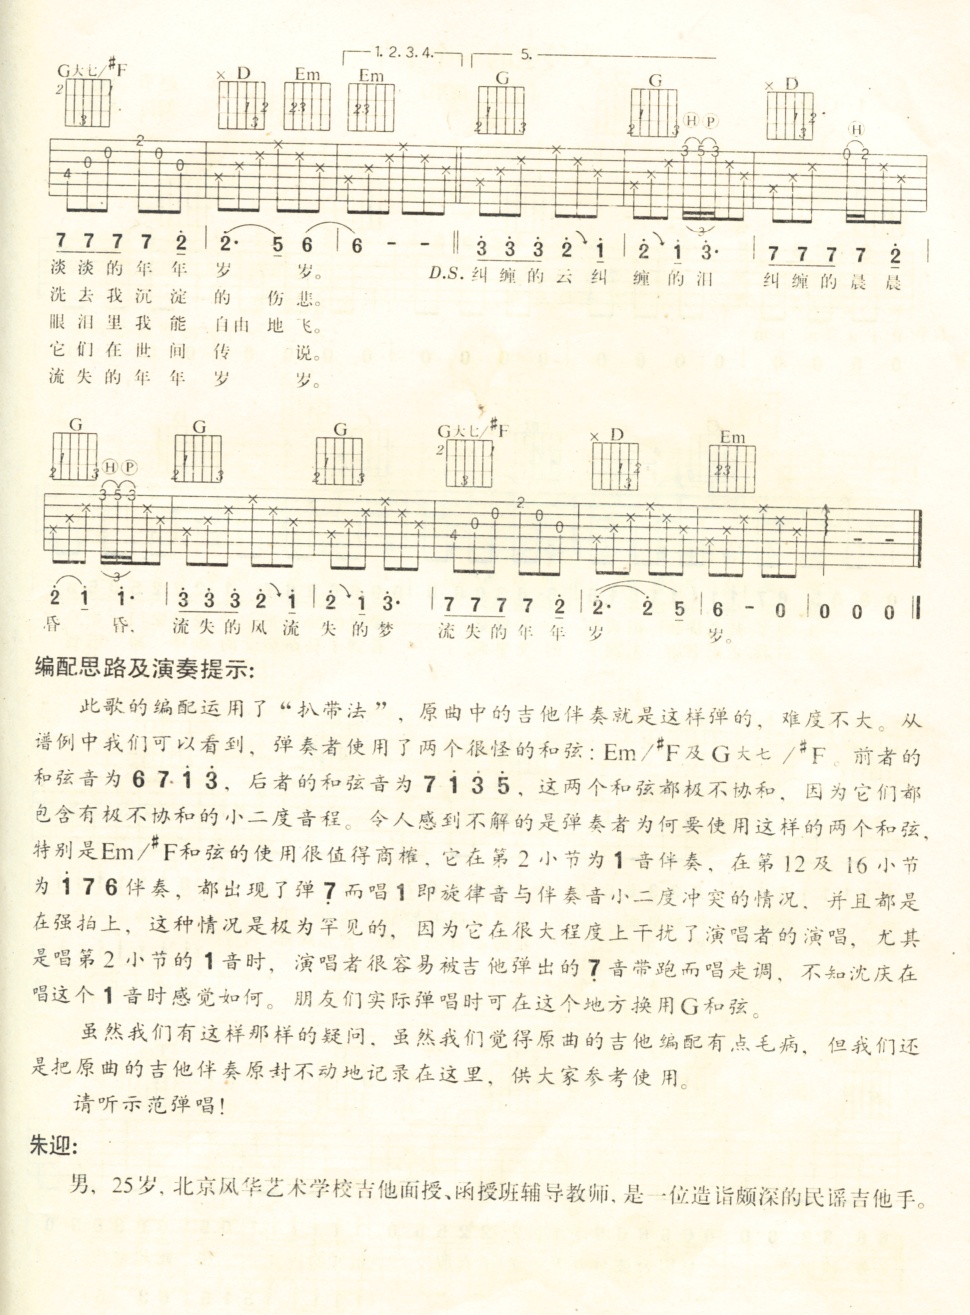 1. 2. 3. 4. 5.
G大七/#F × D Em Em G G × D
淡淡的年年岁 岁。 D.S. 纠缠的云纠 缠的泪 纠缠的晨晨
洗去我沉淀的 伤悲。
眼泪里我能 自由地飞。
它们在世间传 说。
流失的年年岁 岁。
G G G G大七/#F × D Em
昏 昏, 流失的风流 失的梦 流失的年年岁 岁。
编配思路及演奏提示:
此歌的编配运用了“扒带法”,原曲中的吉他伴奏就是这样弹的,难度不大。从
谱例中我们可以看到,弹奏者使用了两个很怪的和弦:Em/#F及G大七/#F。前者的
和弦音为6 7 1̇ 3̇,后者的和弦音为7 1̇ 3̇ 5̇,这两个和弦都极不协和,因为它们都
包含有极不协和的小二度音程。令人感到不解的是弹奏者为何要使用这样的两个和弦,
特别是Em/#F和弦的使用很值得商榷,它在第2小节为1音伴奏,在第12及16小节
为1̇ 7 6伴奏,都出现了弹7̣而唱1即旋律音与伴奏音小二度冲突的情况,并且都是
在强拍上,这种情况是极为罕见的,因为它在很大程度上干扰了演唱者的演唱,尤其
是唱第2小节的1音时,演唱者很容易被吉他弹出的7̣音带跑而唱走调,不知沈庆在
唱这个1音时感觉如何。朋友们实际弹唱时可在这个地方换用G和弦。
虽然我们有这样那样的疑问,虽然我们觉得原曲的吉他编配有点毛病,但我们还
是把原曲的吉他伴奏原封不动地记录在这里,供大家参考使用。
请听示范弹唱!
朱迎:
男,25岁,北京风华艺术学校吉他面授、函授班辅导教师,是一位造诣颇深的民谣吉他手。